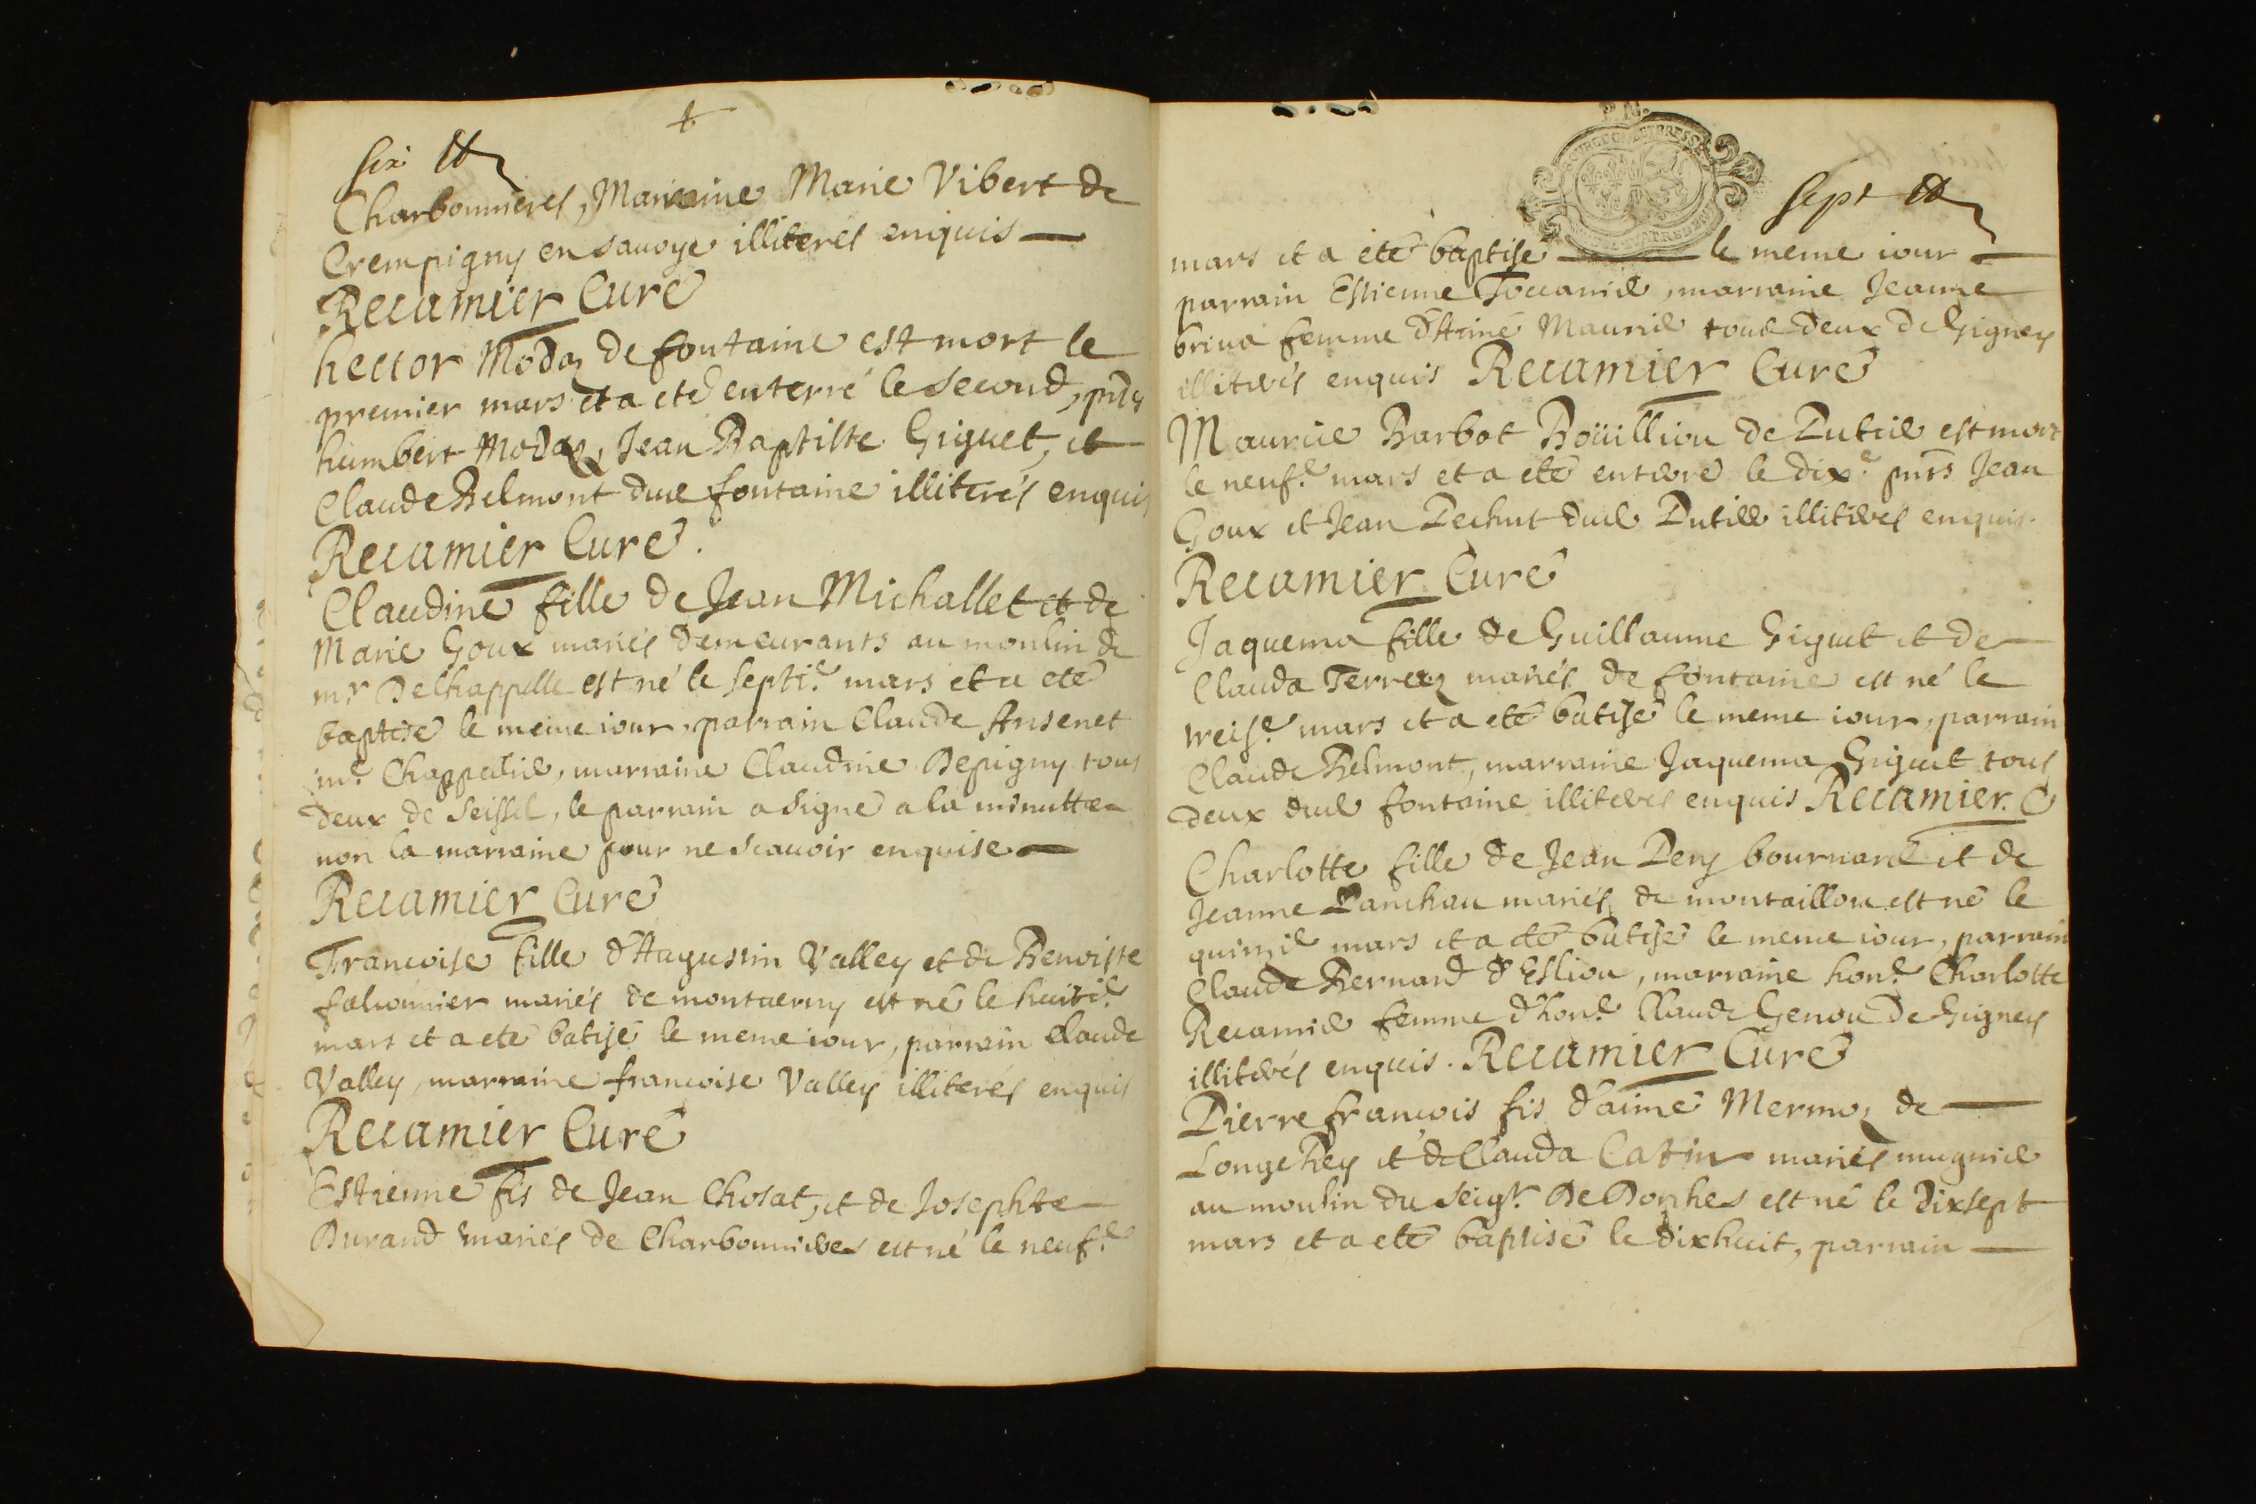 six
Charbonnieres, Marraine Marie Vibert de
Crempigny en Savoye illiteres enquis
Recamier Curé
hector Modaz de fontaine est mort le
premier mars et a eté enterré le second, pnts
humbert Modaz, Jean Baptiste Giguet, et
Claude Belmont dud fontaine illiterés enquis
Recamier Curé.
Claudine fille de Jean Michallet et de
Marie Goux mariés demeurants au moulin de
mr Dechappelle est né le septi.e mars et a eté
baptisé le meme iour, parrain Claude Ansenet
me Chappelier, marraine Claudine Depigny tous
deux de Seissel, le parrain a signé a la minutte
non la marraine pour ne scavoir enquise
Recamier Curé
Francoise fille d'Augustin Valley et de Benoiste
falconnier mariés de est né le huiti.e
mars et a eté batisé le meme iour, parrain Claude
Valley, marraine francoise Valley illiterés enquis
Recamier Curé
Estienne fis de Jean Chosat, et de Josephte
Durand mariés de Charbonnieres est né le neuf.e
P. M.
BOURGOG BRESSE
sept
mars et a eté baptisé le meme iour
parrain Estienne marraine Jeanne
briva femme d'Aimé Maurier tous deux de Gigney
illiterés enquis Recamier Curé
Maurice Barbot Boüillion de est mort
le neuf.e mars et a eté enterré le dix.e pnts Jean
Goux et Jean Pechut dud illiteres enquis
Recamier Curé
Jaquema fille de Guillaume Giguet et de
Clauda Terraz mariés de fontaine est né le
treis.e mars et a eté batisé le meme iour, parrain
Claude Belmont, marraine Jaquema Giguet tous
deux dud fontaine illiteres enquis Recamier. C
Charlotte fille de Jean Pery bournard et de
Jeanne mariés de montaillou est né le
quinzie mars et a eté batisé le meme iour, parrain
Claude Bernard d'Esliou, marraine hon.e Charlotte
Recamier femme d'hon.e Claude Genou de Gigney
illiterés enquis. Recamier Curé
Pierre francois fis d'aimé Mermoz de
Longe Rey et de Clauda Catin mariés mugnier
au moulin du seigr. De Dorches est né le dixsept
mars et a eté baptisé le dixhuit, parrain